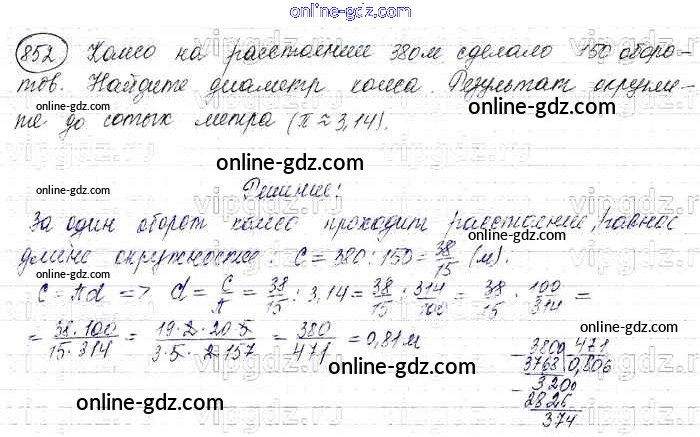 online-gdz.com
852 Колесо на расстоянии 380м сделало 150 оборо-
тов. Найдите диаметр колеса. Результат округли-
online-gdz.com online-gdz.com
те до сотых метра (π ≈ 3,14).
online-gdz.com
Решение:
online-gdz.com
За один оборот колесо проходит расстояние, равное
длине окружности: C = 380 : 150 = 38/15 (м).
online-gdz.com online-gdz.com
C = πd => d = C/π = 38/15 : 3,14 = 38/15 : 314/100 = 38/15 · 100/314 =
= 38·100/15·314 = 19·2·20·5/3·5·2·157 = 380/471 = 0,81 м
online-gdz.com
3800 471
3768 0,806
3200
2826
374
online-gdz.com online-gdz.com
online-gdz.com